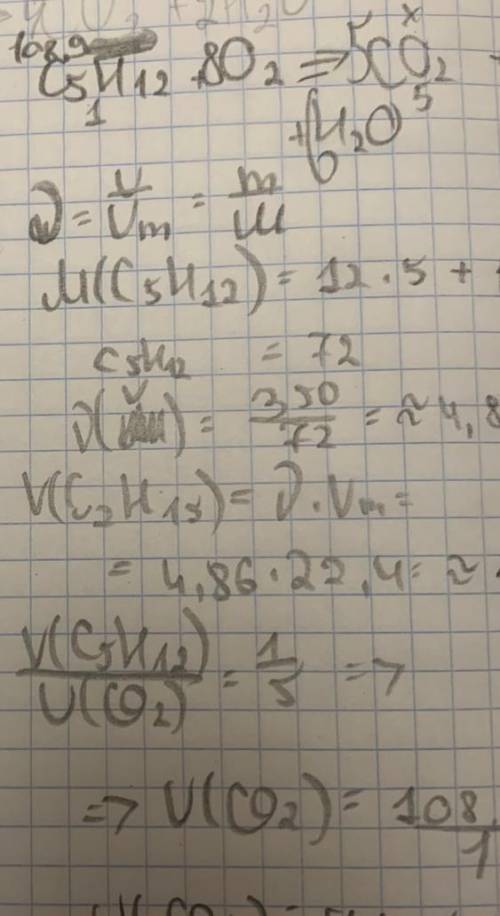 108,9
C5H12 + 8O2 => 5CO2
1 x 5
+ 6H2O
ν = V/Vm = m/M
M(C5H12) = 12 · 5 +
C5H12 = 72
ν = 350/72 = ≈ 4,8
V(C2H12) = ν · Vm =
= 4,86 · 22,4 = ≈
V(C5H12)/V(CO2) = 1/5 =>
=> V(CO2) = 108/1